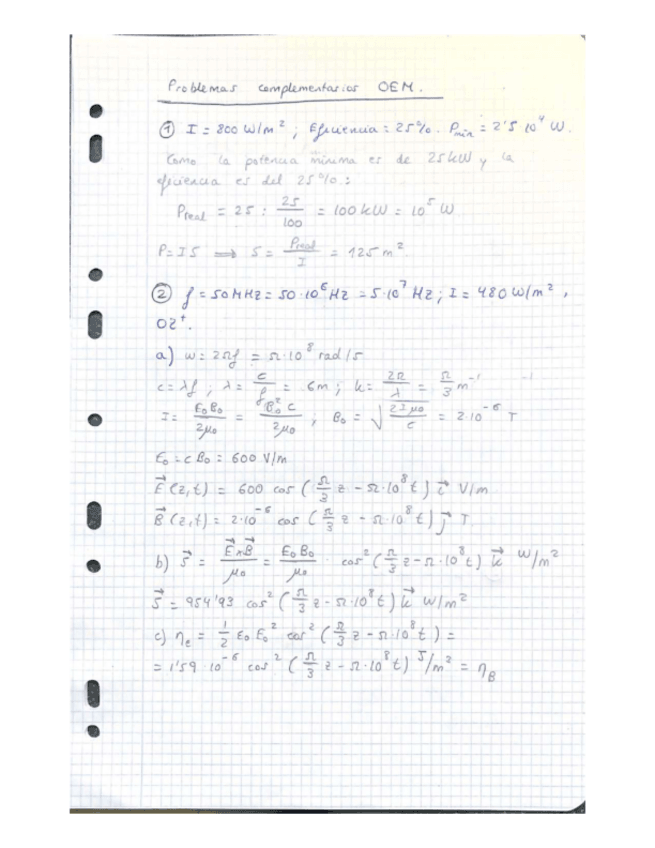 Problemas complementarios OEM.
① I = 800 W/m²; Eficiencia = 25%. Pmín = 2'5 10⁴ W.
Como la potencia mínima es de 25 kW y la
eficiencia es del 25%:
Preal = 25 : 25/100 = 100 kW = 10⁵ W
P = I S ⟹ S = Preal/I = 125 m².
② f = 50 MHz = 50·10⁶ Hz = 5·10⁷ Hz; I = 480 W/m²,
OZ⁺.
a) ω = 2πf = π·10⁸ rad/s
c = λf ; λ = c/f = 6m ; k = 2π/λ = π/3 m⁻¹
I = E₀B₀/2μ₀ = B₀² c/2μ₀ ; B₀ = √(2Iμ₀/c) = 2·10⁻⁶ T
E₀ = c B₀ = 600 V/m
E⃗ (z,t) = 600 cos (π/3 z − π·10⁸ t) i⃗ V/m
B⃗ (z,t) = 2·10⁻⁶ cos (π/3 z − π·10⁸ t) j⃗ T
b) S⃗ = E⃗×B⃗/μ₀ = E₀B₀/μ₀ · cos² (π/3 z − π·10⁸ t) k⃗ W/m²
S⃗ = 954'93 cos² (π/3 z − π·10⁸ t) k⃗ W/m²
c) ηe = 1/2 ε₀ E₀² cos² (π/3 z − π·10⁸ t) =
= 1'59 · 10⁻⁶ cos² (π/3 z − π·10⁸ t) J/m² = ηB